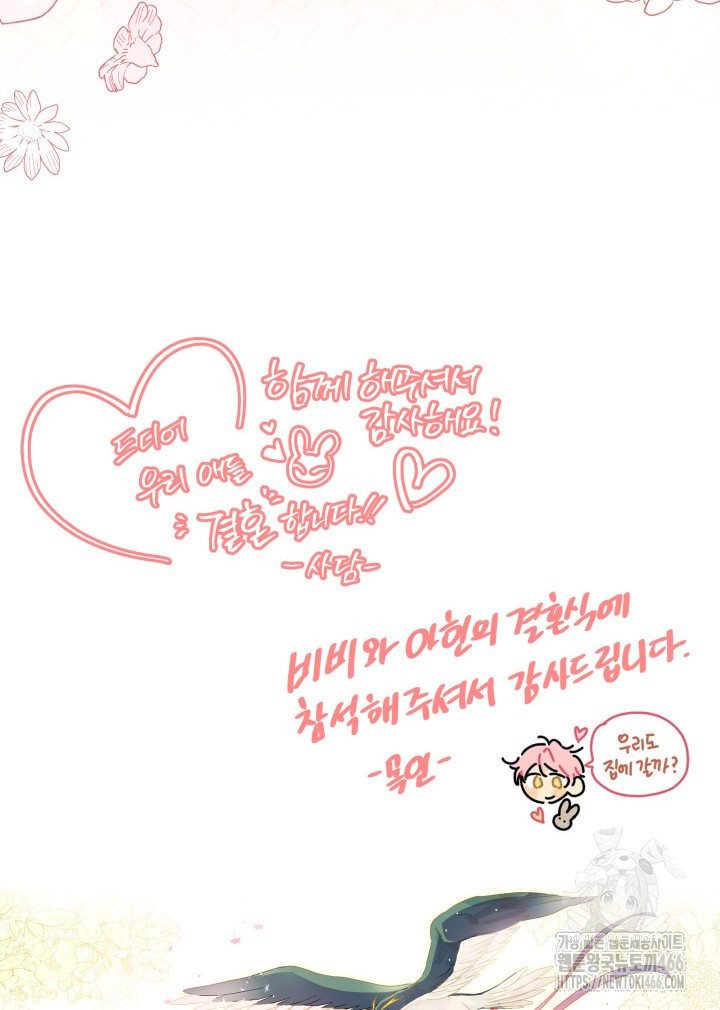 드디어
우리 애들
결혼 합니다!!
함께 해주셔서
감사해요!
-사담-
비비와 아현의 결혼식에
참석해주셔서 감사드립니다.
-목인-
우리도
집에 갈까?
가장 빠른 웹툰제공사이트
웹툰왕국뉴토끼466
HTTPS://NEWTOKI466.COM